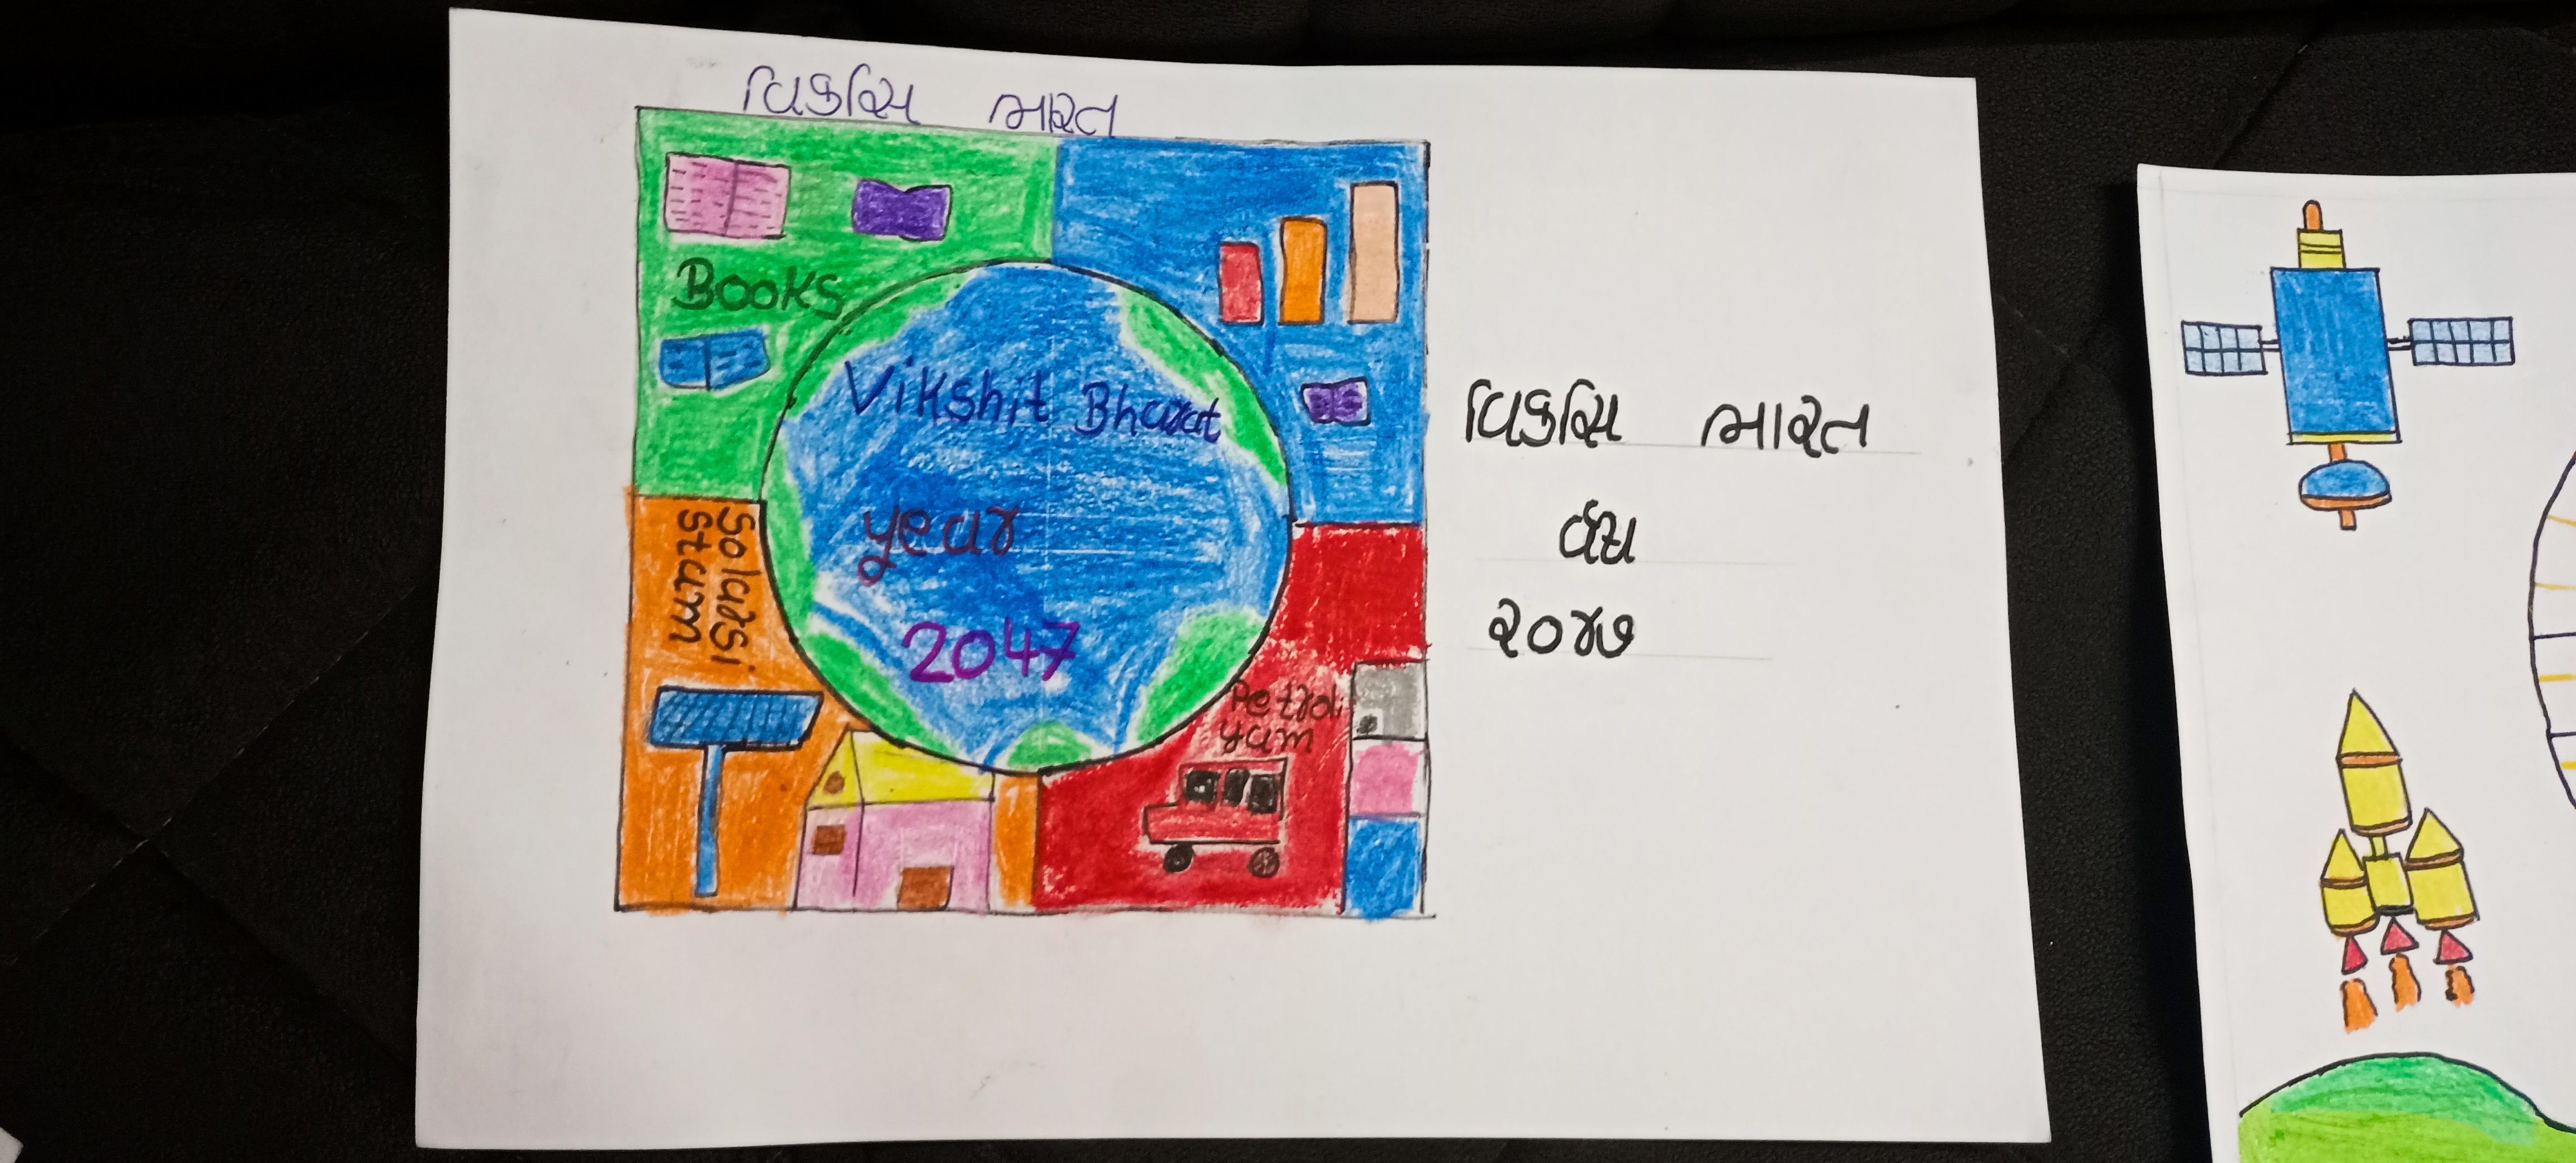 વિકસિ ભારત
Books
Vikshit Bharat
year
2047
Solarsi
stum
Petroli
yam
વિકસિ ભારત
વર્ષ
૨૦૪૭